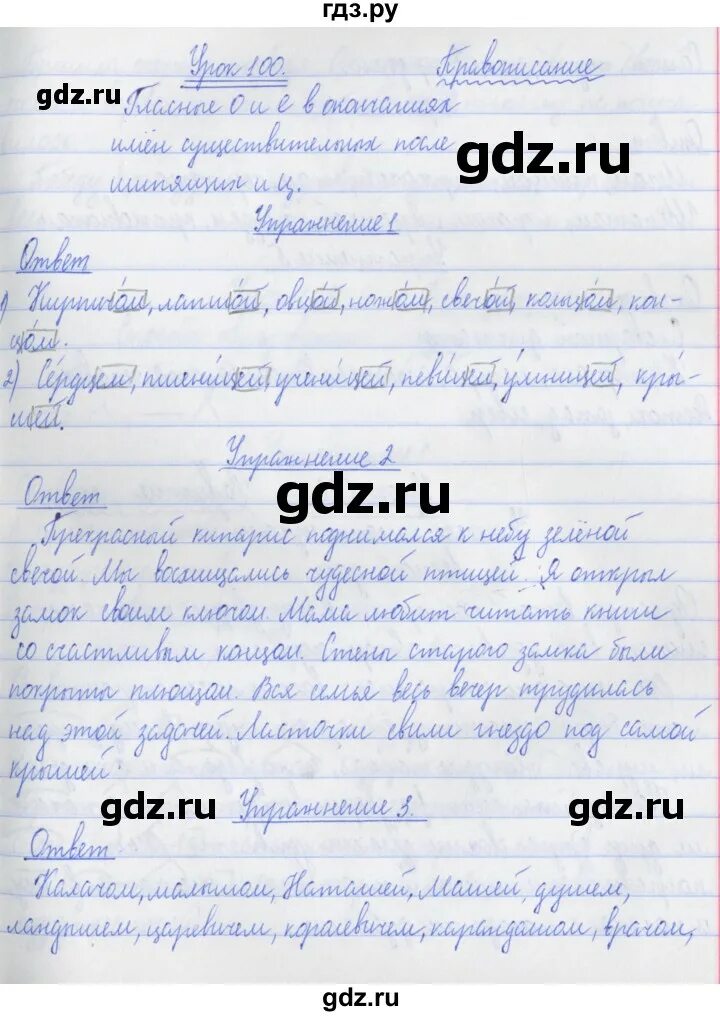 гдз.ру
Урок 100. Правописание
gdz.ru
Гласные О и е в окончаниях
имён существительных после
gdz.ru
шипящих и ц.
Упражнение 1
Ответ
1) Кирпичо́м, лапшо́й, овцо́й, ножо́м, свечо́й, кольцо́м, кон-
цо́м.
2) Се́рдцем, пшени́цей, учени́цей, певи́цей, у́мницей, кры́-
шей.
Упражнение 2
Ответ
gdz.ru
Прекрасный кипарис поднимался к небу зелёной
свечой. Мы восхищались чудесной птицей. Я открыл
замок своим ключом. Мама любит читать книги
со счастливым концом. Стены старого замка были
покрыты плющом. Вся семья весь вечер трудилась
над этой задачей. Ласточки свили гнездо под самой
крышей.
gdz.ru
Упражнение 3.
gdz.ru
Ответ
Калачом, малышом, Наташей, Машей, душем,
ландышем, царевичем, королевичем, карандашом, врачом,
gdz.ru